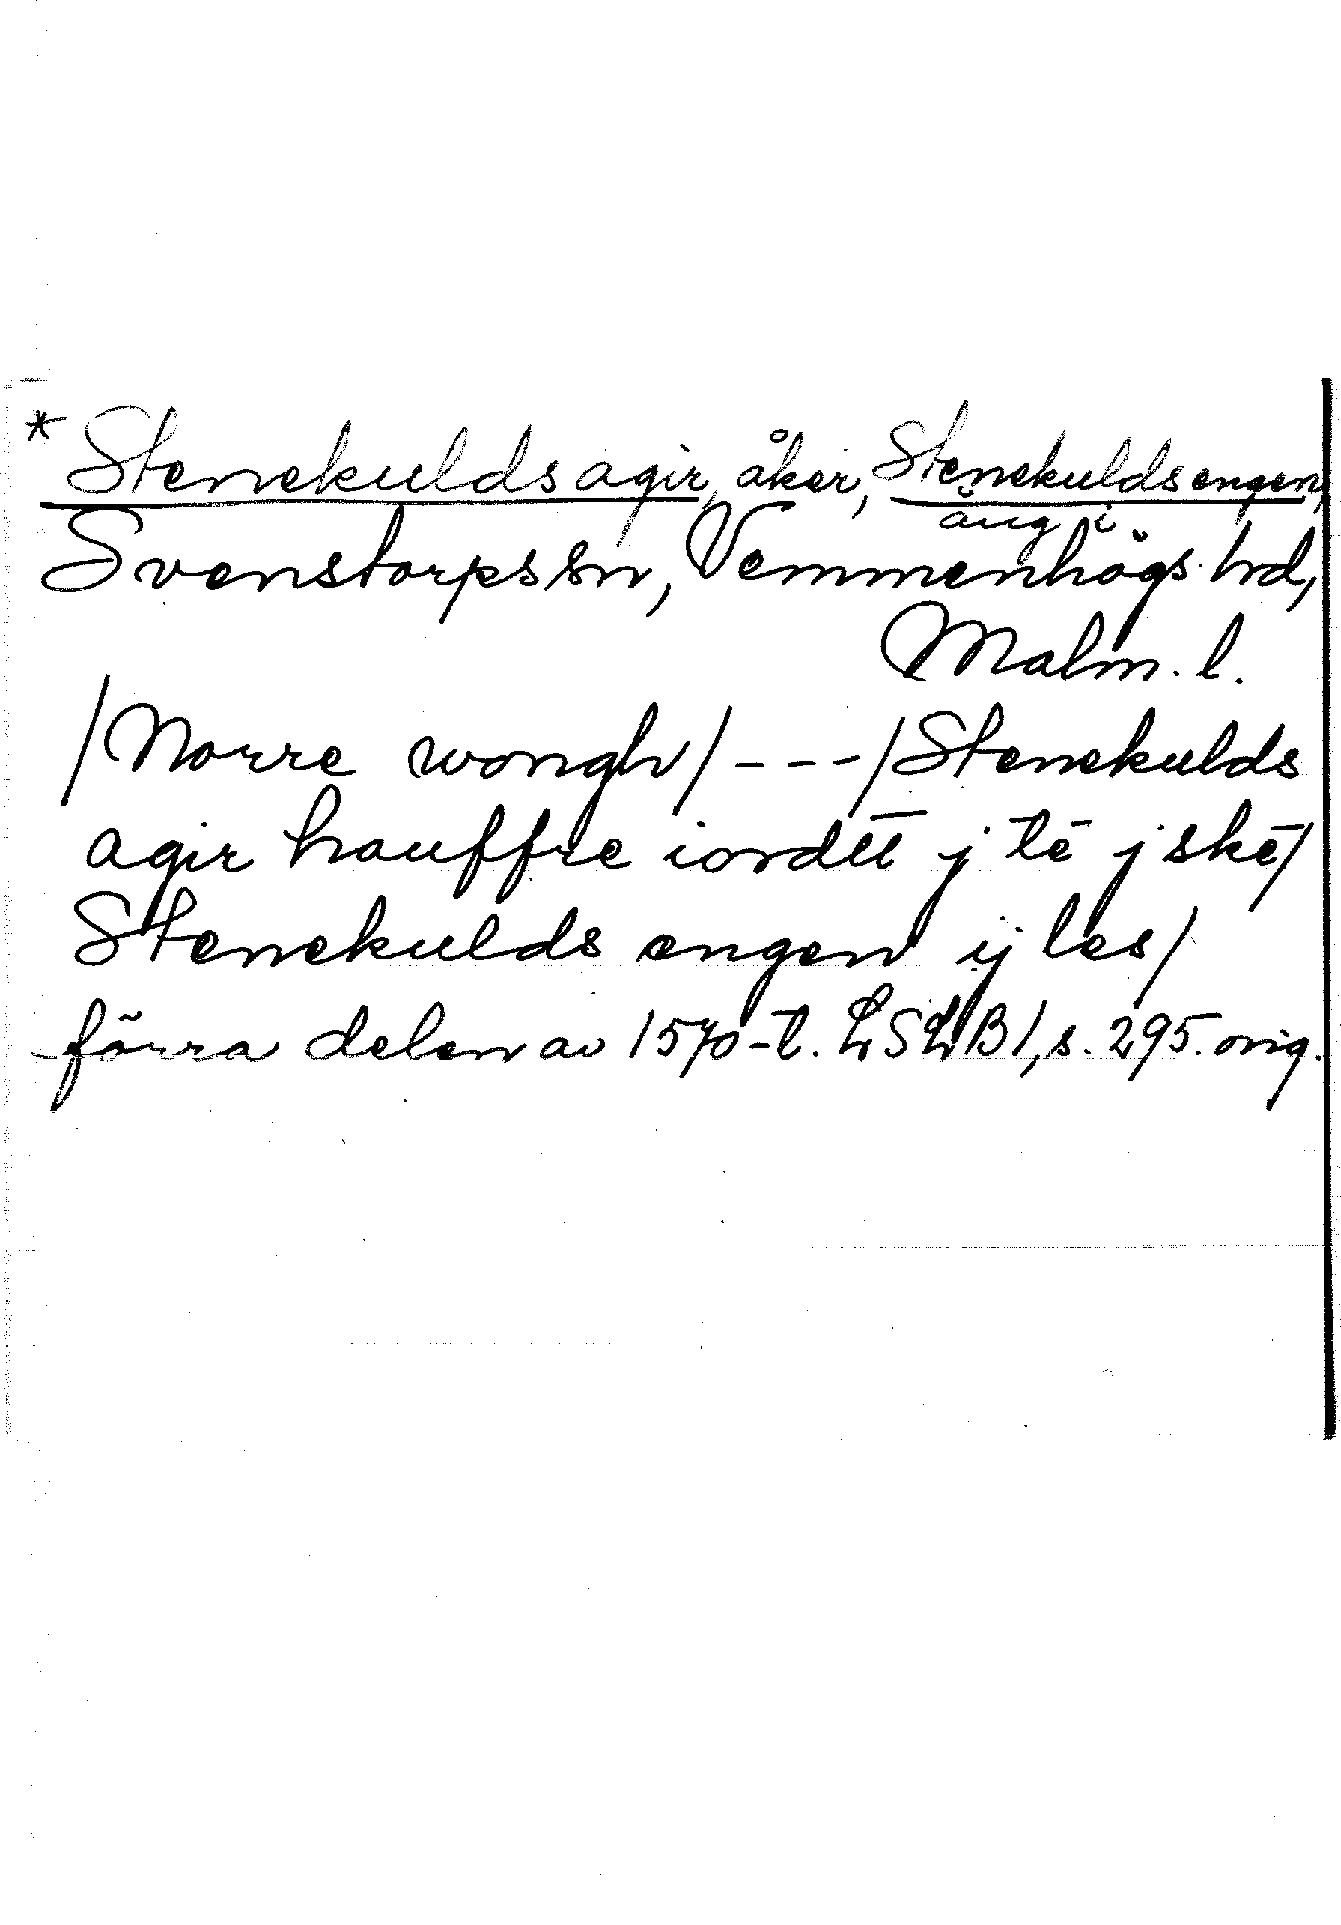 * Stenekulds agir, åker, Stenekulds engen,
äng i
Svenstorps sn, Vemmenhögs hd,
Malm. l.
/Norre wongh/ - - - /Stenekulds
agir hauffre iordtt j tē j skē/
Stenekulds engen ij les/
förra delen av 1570-t. LSLB 1, s. 295. orig.